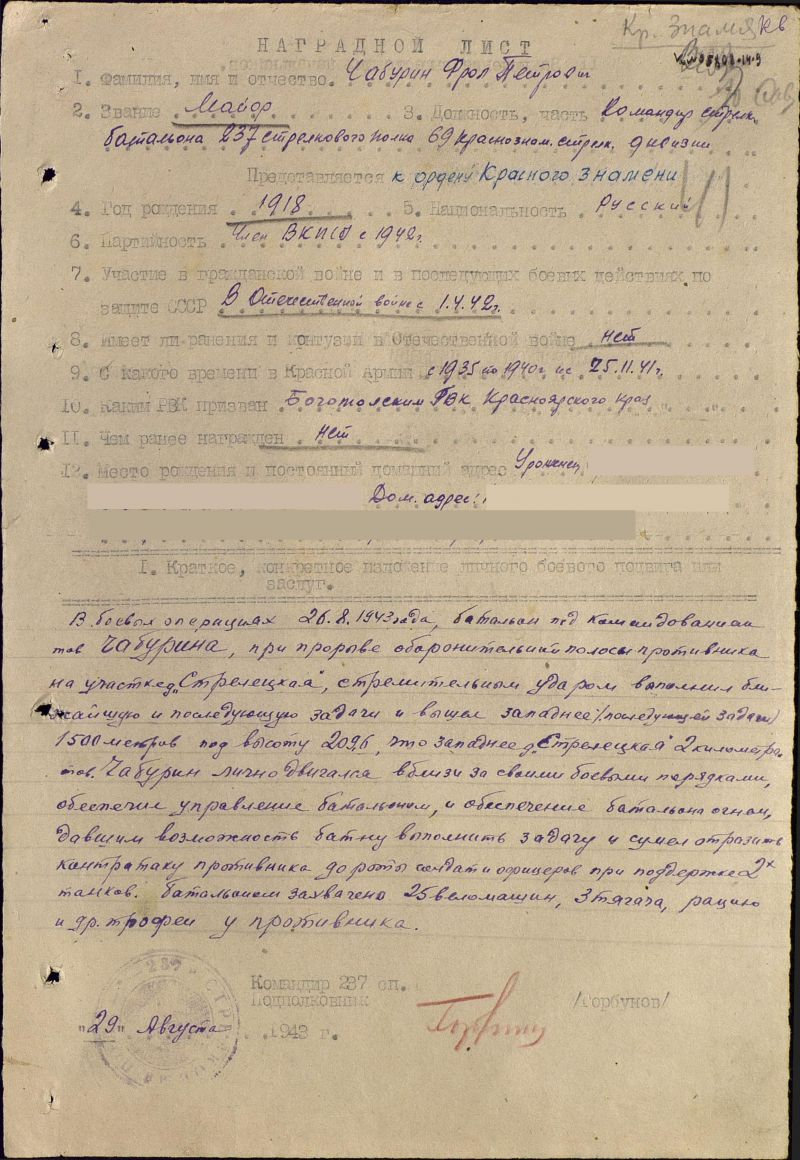 Кр. Знамя
НАГРАДНОЙ ЛИСТ
1. Фамилия, имя и отчество. Чабурин Фрол Петрович
2. Звание Майор 3. Должность, часть Командир стрелк.
батальона 237 стрелкового полка 69 Краснознам. стрелк. дивизии
Представляется к ордену Красного Знамени
4. Год рождения 1918 5. Национальность Русский
6. Партийность Член ВКП(б) с 1942г.
7. Участие в гражданской войне и в последующих боевых действиях по
защите СССР В Отечественной войне с 1.4.42г.
8. Имеет ли ранения и контузии в Отечественной войне нет
9. С какого времени в Красной Армии с 1935 по 1940г и с 25.11.41г.
10. Каким РВК призван Боготолским РВК Красноярского Края
11. Чем ранее награжден нет
12. Место рождения и постоянный домашний адрес Уроженец
Дом. адрес:
1. Краткое, конкретное изложение личного боевого подвига или
заслуг.
В боевых операциях 26.8.1943 года, батальон под командованием
тов Чабурина, при прорыве оборонительной полосы противника
на участке д. „Стрелецкая", стремительным ударом выполнил бли-
жайшую и последующую задачи и вышел западнее (последующей задачи)
1500 метров под высоту 209,6, что западнее д. „Стрелецкая" 2 километра
тов. Чабурин лично двигался вблизи за своими боевыми порядками,
обеспечив управление батальоном, и обеспечение батальона огнем,
давшим возможность бат-ну выполнить задачу и сумел отразить
контратаку противника до роты солдат и офицеров при поддержке 2х
танков. батальоном захвачено 25 веломашин, 3 тягача, рацию
и др. трофеи у противника.
Командир 237 сп.
Подполковник /Горбунов/
"29" Августа 1943 г.